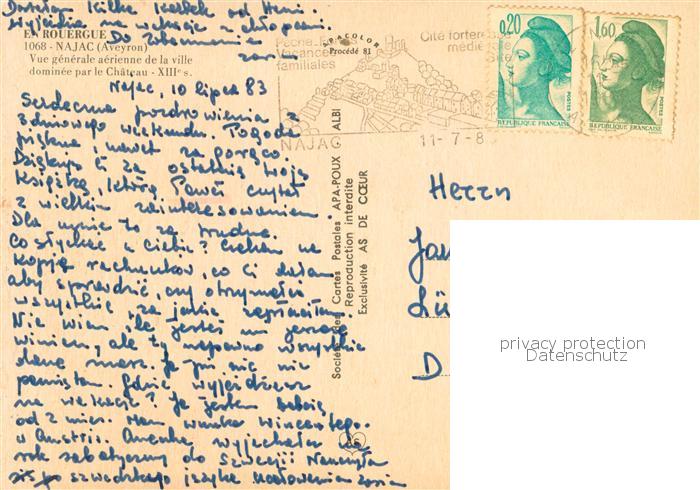 Dostałam Kilka Kartek od Heni.
Wyjeżdża na wakacje z chłopcami.
Do Zobaczenia
Zosia
EN ROUERGUE
1068 - NAJAC (Aveyron)
Vue générale aérienne de la ville
dominée par le Château - XIIIe s.
SPACOLOR
Procédé 81
Pêche
Vacances
familiales
Cité forteresse
médiévale
Site
NAJAC
11-7-8
0,20
POSTES
REPUBLIQUE FRANÇAISE
1,60
POSTES
REPUBLIQUE FRANÇAISE
Najac, 10 lipca 83
Serdeczne pozdrowienia z
zdrowego weekendu. Pogoda
piękna, nawet za gorąco.
Dziękuję Ci za ostatnią twoją
Książkę, którą Paweł czytał
z wielkim zainteresowaniem.
Dla mnie to za trudne.
Co słychać u ciebie? Czekam na
Kopię rachunków, co Ci dałam
aby sprawdzić, czy otrzymałeś
wszystkie za jakie zapłaciłam.
Nie wiem ile jesteś mi jeszcze
winien, ale ty napewno wszystkie
dane masz. Ja już nic nie
pamiętam. Gdzie wyjeżdżasz
na wakacje? Ja jestem babcią
od 2 mies. Mam wnuka Wincentego.
w Austrii. wyjechała na
rok sabatyczny do Szwecji. Nauczyła
się po szwedzkiego języka. Ucałowania Zosia
Société des Cartes Postales APA-POUX ALBI
Reproduction interdite
Exclusivité AS DE CŒUR
Herrn
Jan
Lü
D
privacy protection
Datenschutz